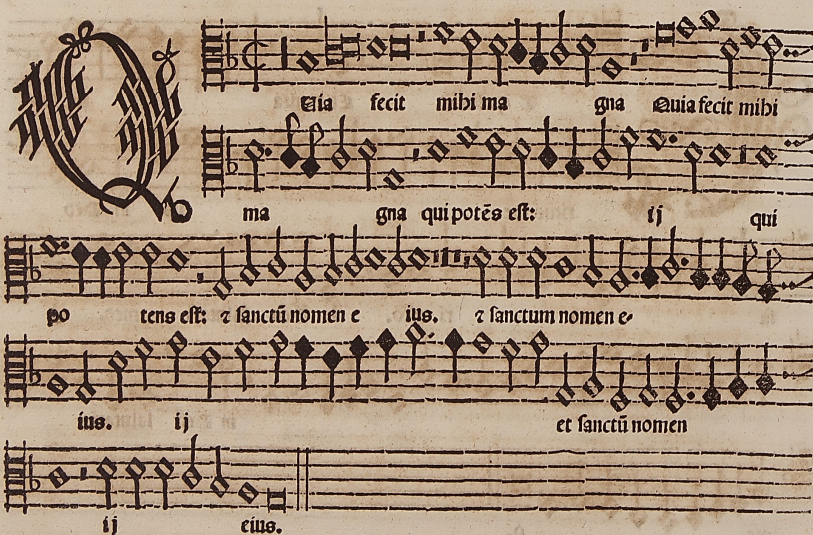 Quia fecit mihi ma gna Quia fecit mihi
ma gna qui potēs est: ij qui
po tens est: ⁊ sanctū nomen e ius. ⁊ sanctum nomen e-
ius. ij et sanctū nomen
ij eius.